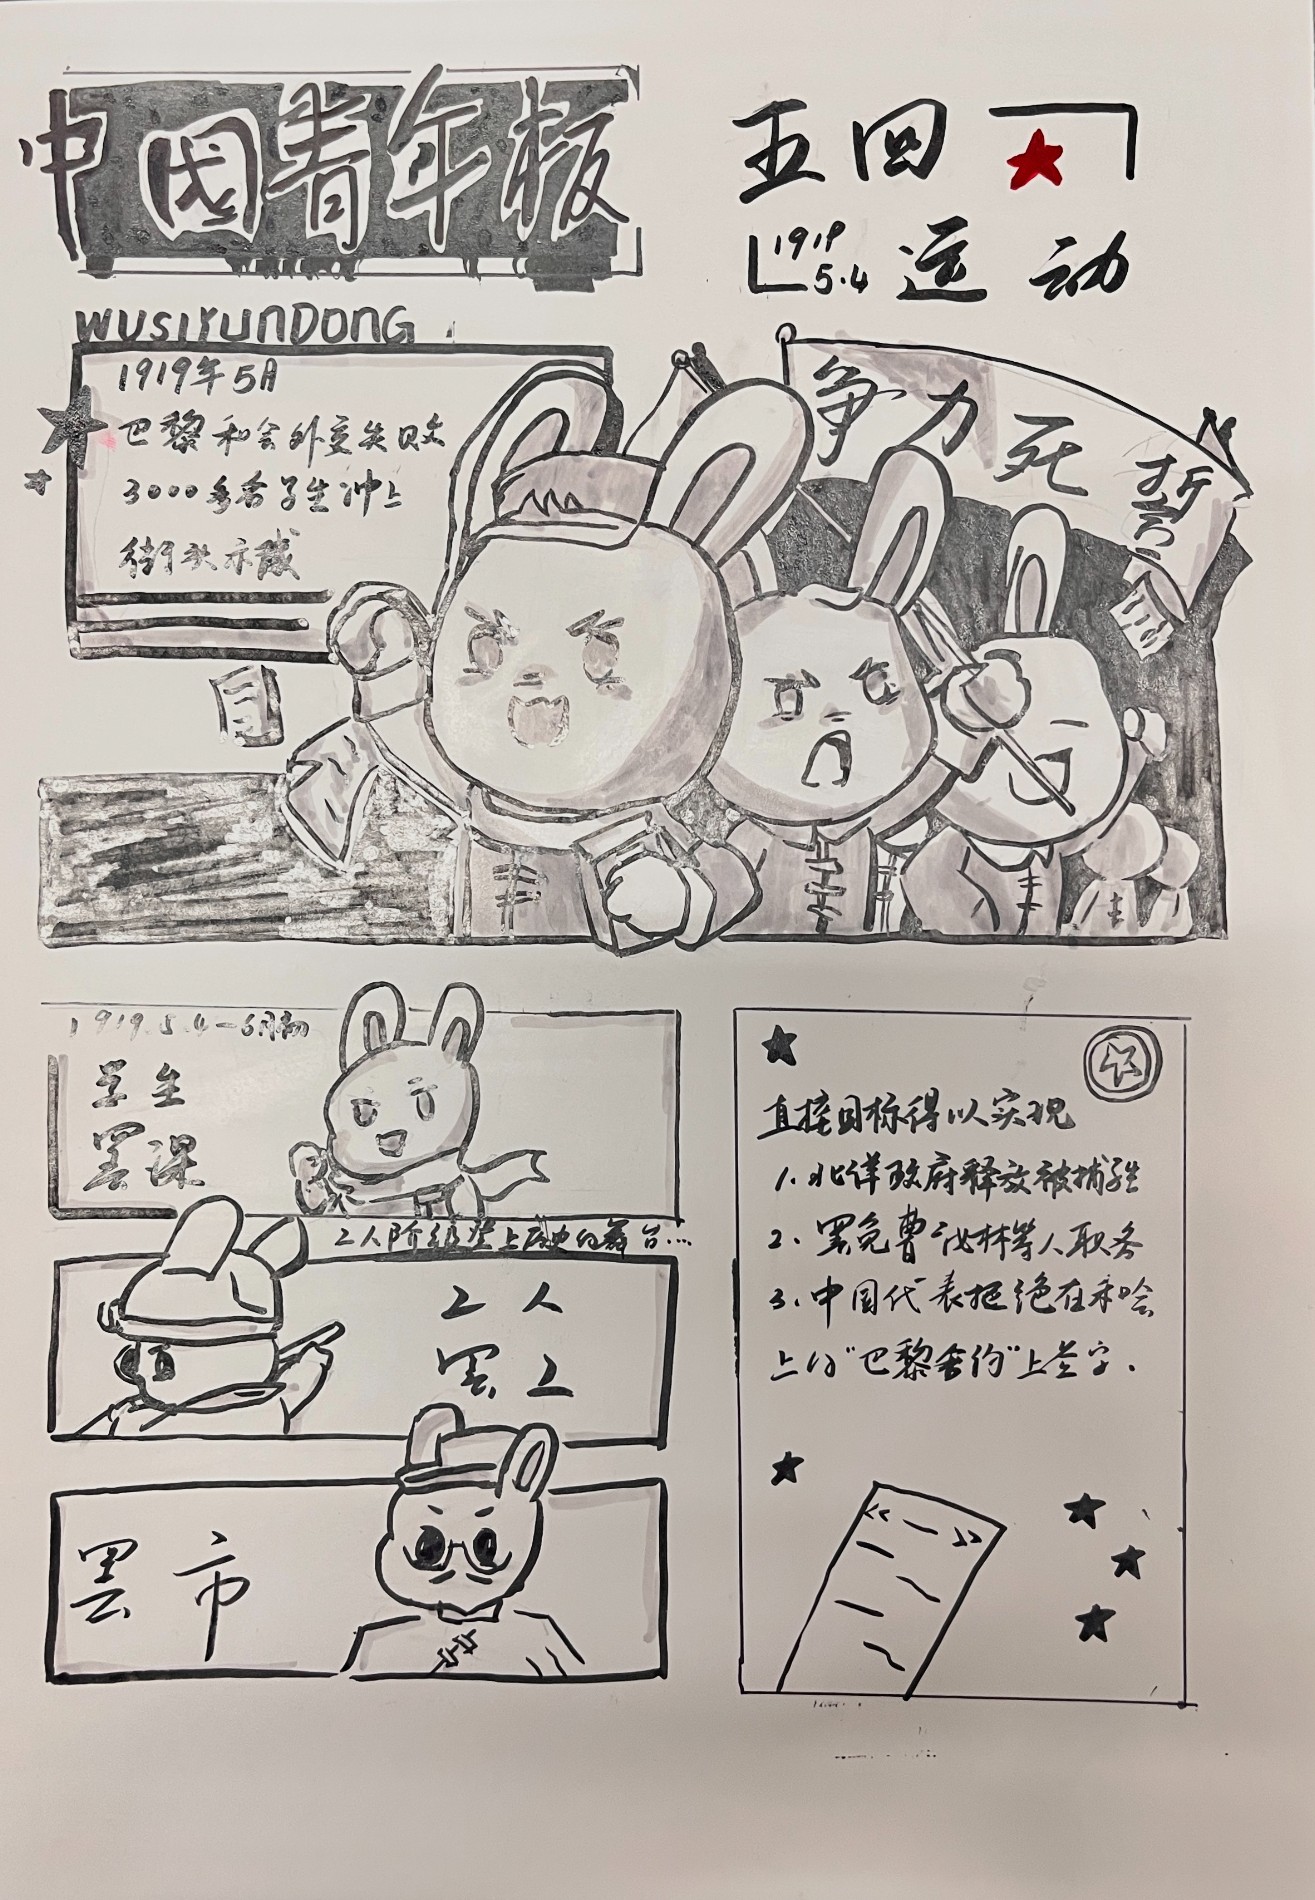 中国青年报
五四
1919
5.4
运动
WUSIYUNDONG
1919年5月
巴黎和会外交失败
3000多名学生冲上
街头示威
誓死力争
1919.5.4-6月初
学生
罢课
工人阶级登上历史的舞台...
工人
罢工
罢市
直接目标得以实现
1.北洋政府释放被捕学生
2.罢免曹汝林等人职务
3.中国代表拒绝在和会
上的“巴黎合约”上签字.